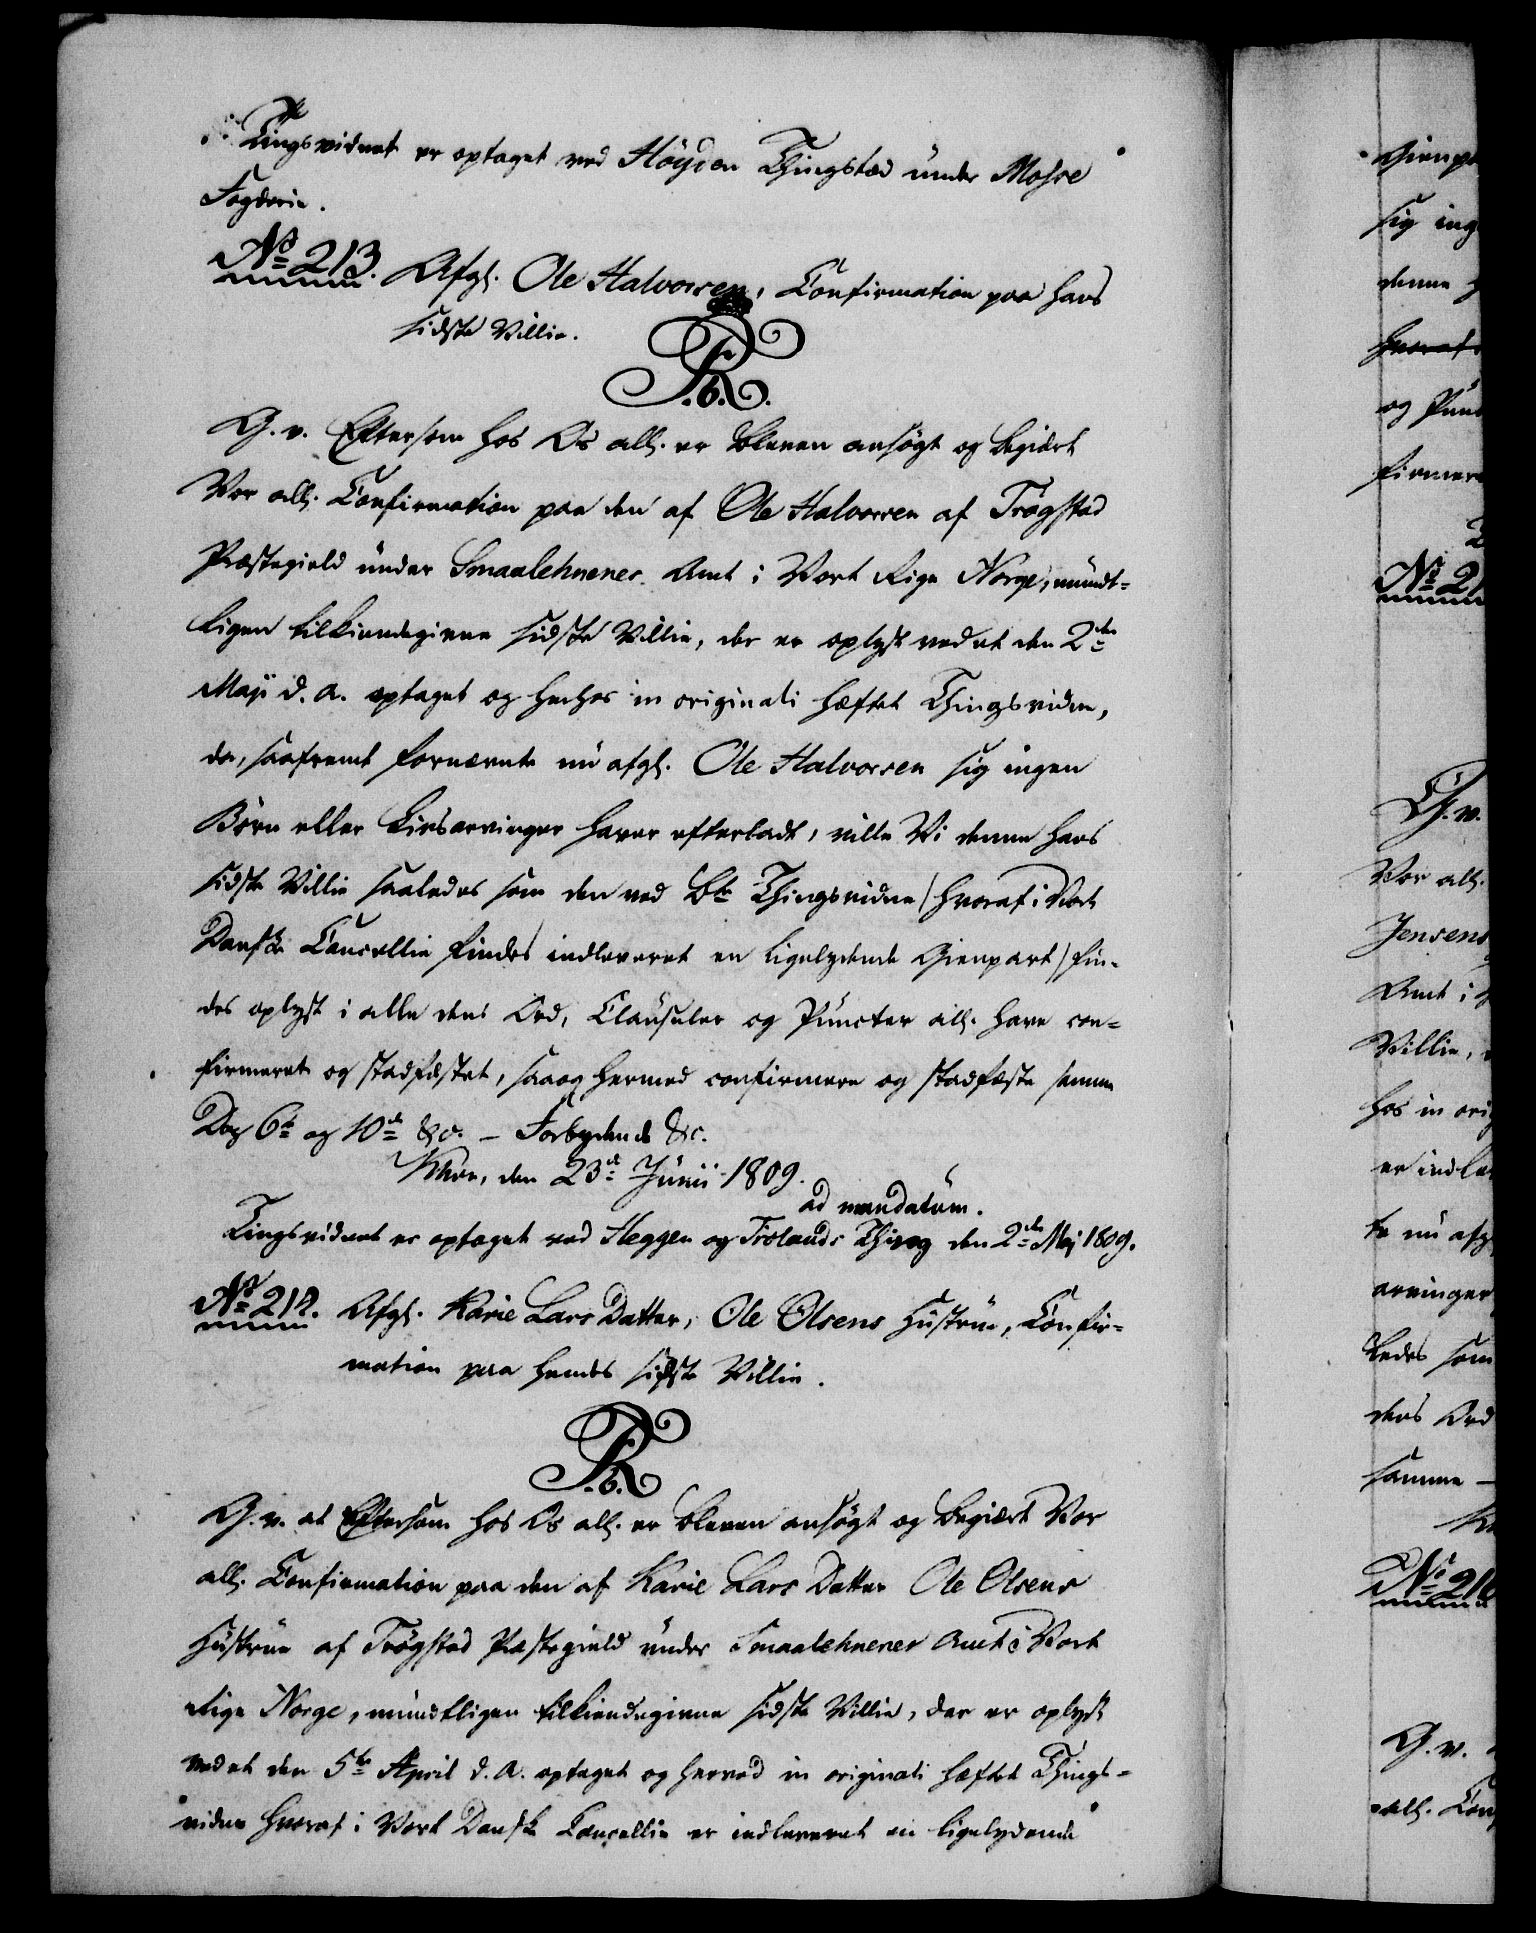 Tingsvidnet er optaget ved Höyden Thingstæd under Mosse
Fogderie.
No 213. Afgl. Ole Halvorsen, Confirmation paa hans
sidste Villie.
R
6.
G. v. Eftersom hos Os all. er bleven ansögt og begiert
Vor all. Confirmation paa den af Ole Halvorsen af Trögstad
Præstegield under Smaalehnenes Amt i Vort Rige Norge, mundt=
ligen tilkiendegivne sidste Villie, der er oplyst ved et den 2den
Maji d. A. optaget og herhos in originali hæftet Thingsvidne,
da, saafremt fornævnte nu afgl. Ole Halvorsen sig ingen
Börn eller Livsarvinger haver efterladt, ville Vi denne hans
sidste Villie saaledes som den ved bte Thingsvidne (hvoraf i Vort
Danske Cancellie findes indleveret en ligelydende Gienpart) fin=
des oplyst i alle dens Ord, Clausuler og Puncter all. have con=
firmeret og stadfæstet, saaog hermed confirmere og stadfæste samme
Dog 6te og 10de &c. – Forbydende &c.
Khvn, den 23de Junii 1809.
ad mandatum.
Tingsvidnet er optaget ved Heggen og Frölands Thing den 2den Maj 1809.
No 214. Afgl. Karie Lars Datter, Ole Olsens Hustrue, Confir=
mation paa hendes sidste Villie.
R
6.
G. v. at Eftersom hos Os all. er bleven ansögt og begiert Vor
all. Confirmation paa den af Karie Lars Datter Ole Olsens
Hustrue af Trögstad Præstegield under Smaalehnenes Amt i Vort
Rige Norge, mundtligen tilkiendegivne sidste Villie, der er oplyst
ved et den 5te April d. A. optaget og herved in originali hæftet Things=
vidne hvoraf i Vort Danske Cancellie er indleveret en ligelydende
Gienpa
sig ing
denne
hvoraf
og Punc
firmere
No 21
G. v.
Vor all.
Jensens
Amt i
Villie,
hos in orig
er indle
te nu afg
arvinger
ledes som
dens Ord
samme –
No 216
G. v.
all. Con